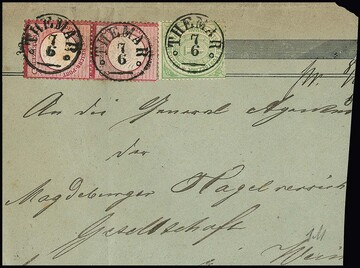 THEMAR
7
6
THEMAR
7
6
THEMAR
7
6
An die General Agentur
der
Magdeburger Hagelversich
Gesellschaft
in Wei